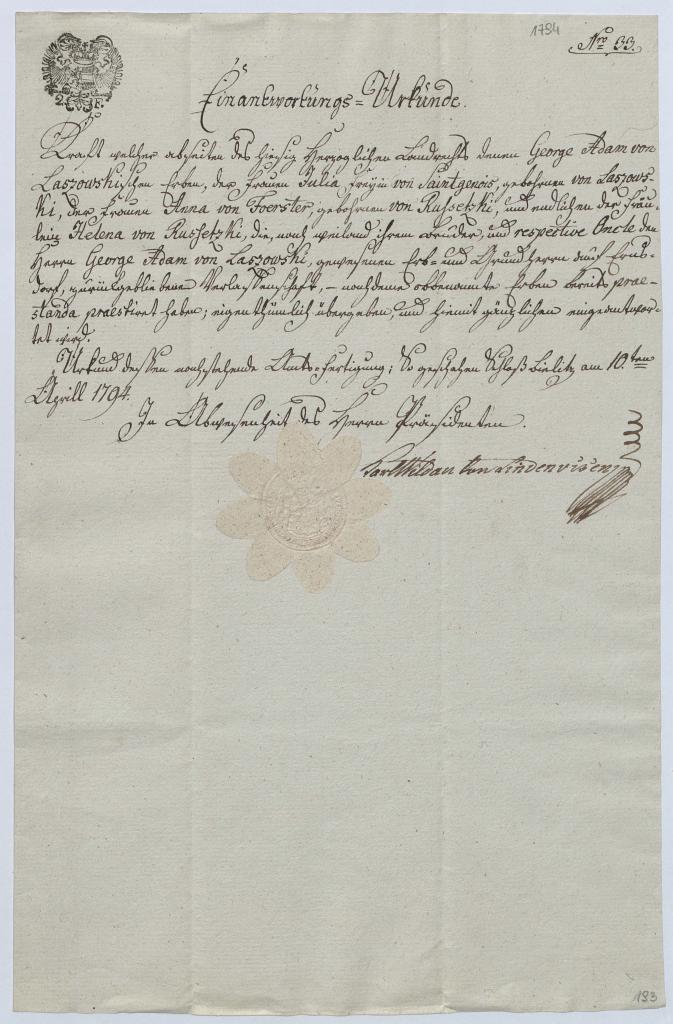 1794
Nro 33.
2. F.
Einantwortungs=Urkunde.
Kraft welcher abseiten des hiesig Herzoglichen Landrechts denen George Adam von
Laszowskischen Erben, der Frauen Julia, Freÿin von Saintgenois, gebohrnen von Laszows-
ki, der Frauen Anna von Foerster, gebohrnen von Russetzki, und endlichen der Fräu-
lein Helena von Russetzki, die, nach weiland ihrem Bruder, und respective Oncle den
Herrn George Adam von Laszowski, gewesenen Erb= und Grundherrn auf Erns-
dorf, zurückgebliebene Verlassenschaft, – nachdeme obbenannte Erben bereits prae-
standa praestiret haben; eigenthümlich übergeben, und hiemit gänzlichen eingeantwor-
tet wird.
Urkund dessen nachstehende Amts=Fertigung; So geschehen Schloß Bielitz am 10.ten
Aprill 1794.
In Abwesenheit des Herrn Präsidenten.
193